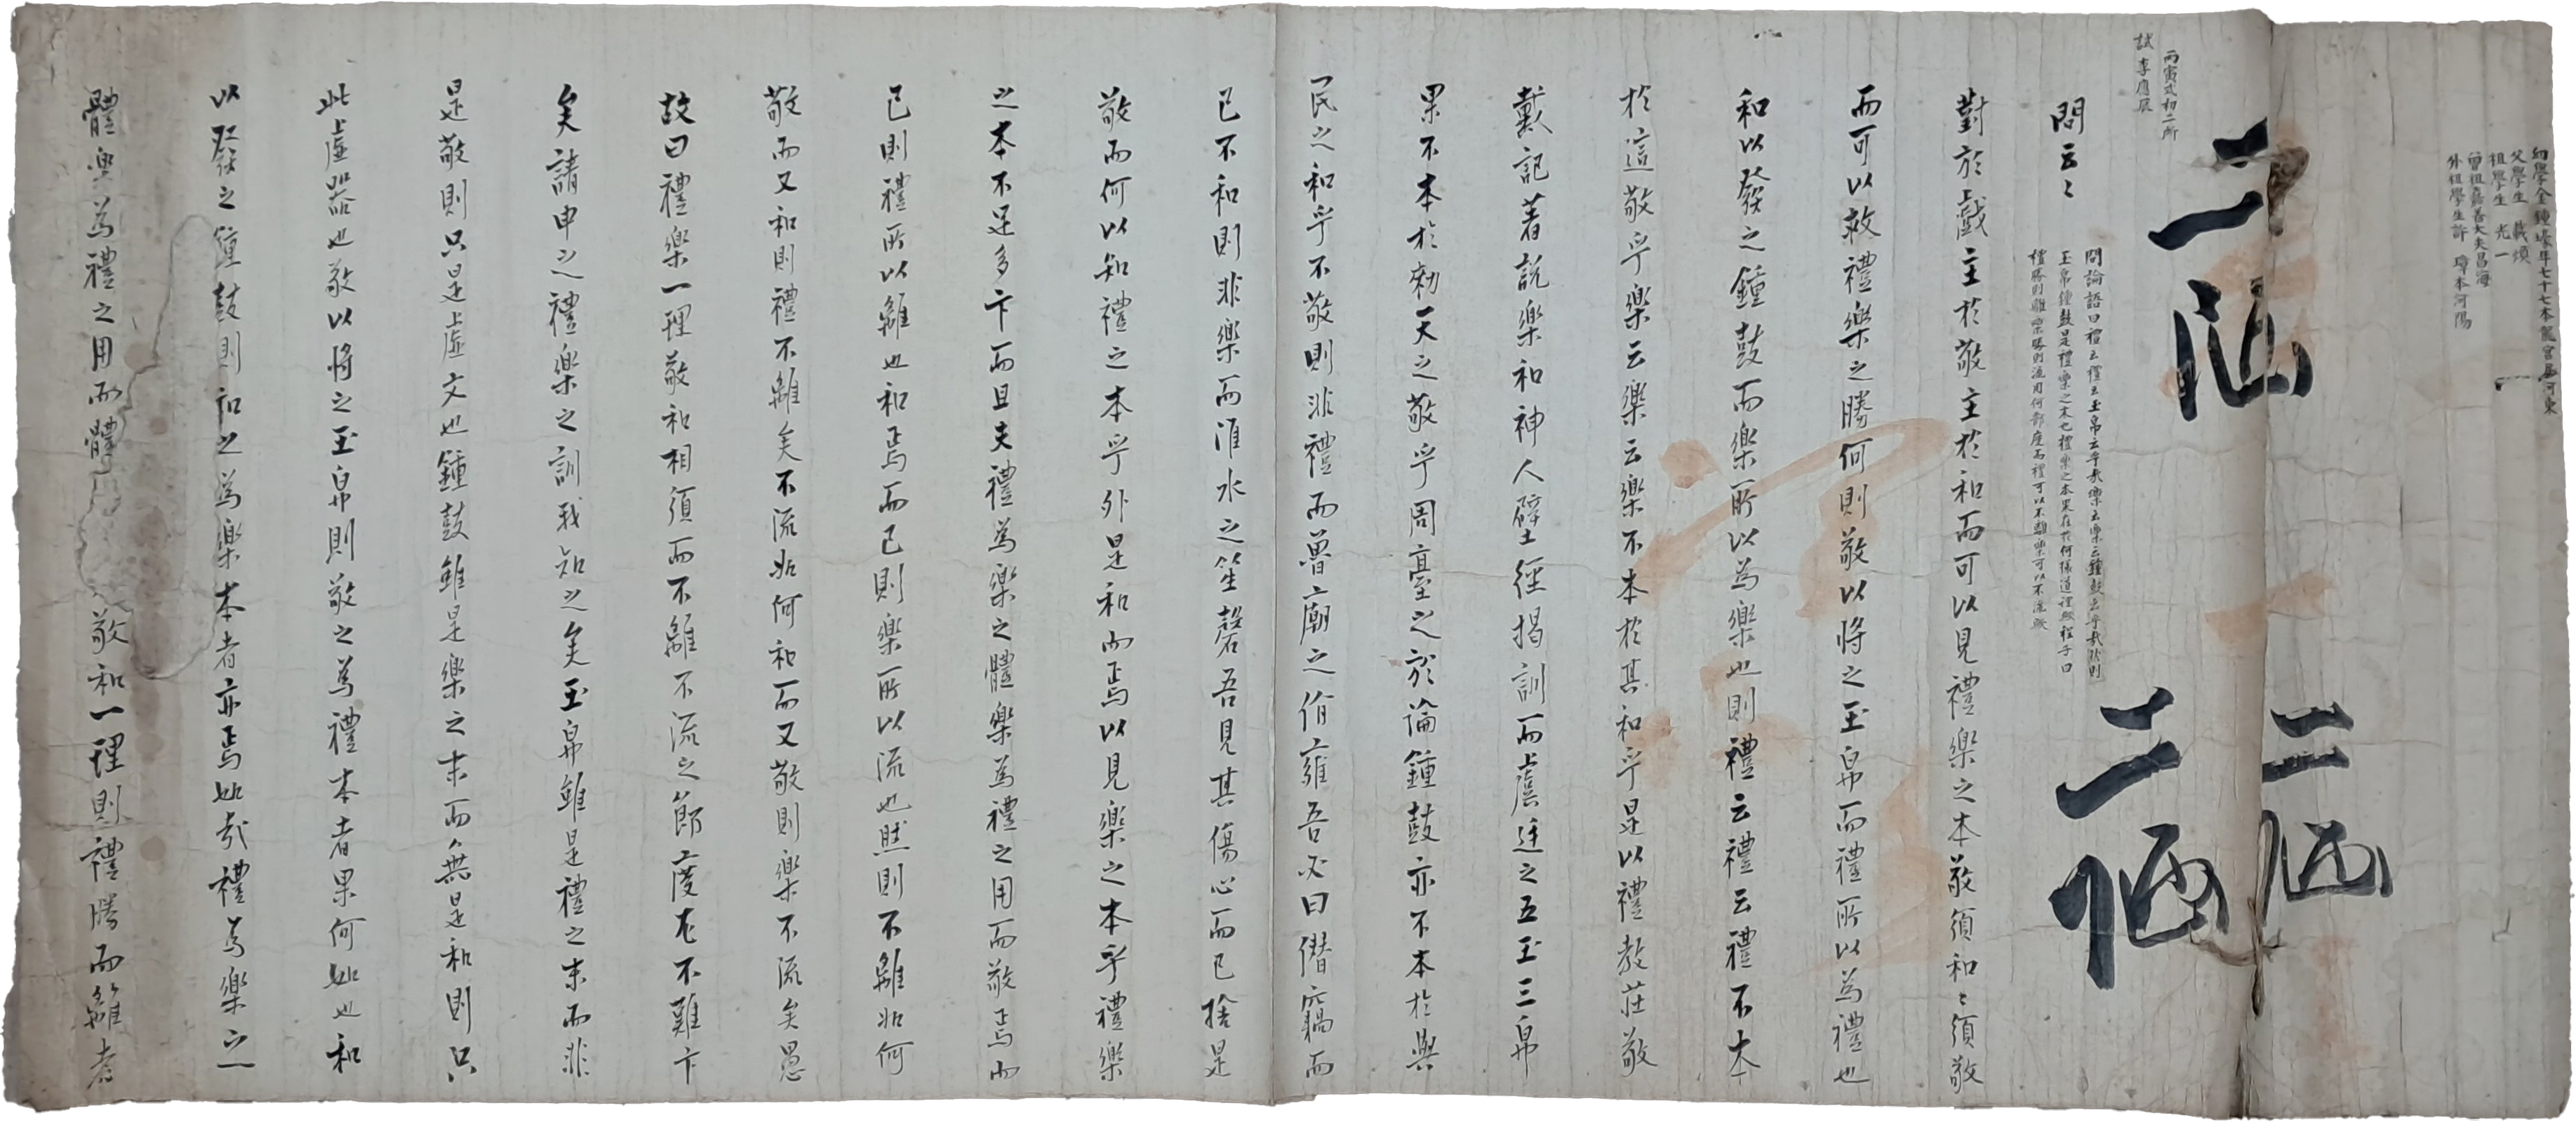 幼學金鍾璩年七十七本龍宮居河東
父學生 義煩
祖學生 光一
曾祖嘉善大夫昌海
外祖學生許 璋本河陽
二
二
丙寅式初二所
試 李應辰
問云〻
問論語曰禮云禮云玉帛云乎哉樂云樂云鍾鼓云乎哉然則
玉帛鍾鼓是禮樂之末也禮樂之本果在於何樣道理歟程子曰
禮勝則離樂勝則流用何節度而禮可以不離樂可以不流歟
對於戲主於敬主於和而可以見禮樂之本敬須和〻須敬
而可以救禮樂之勝何則敬以將之玉帛而禮所以為禮也
和以發之鍾鼓而樂所以為樂也則禮云禮云禮不本
於這敬乎樂云樂云樂不本於其和乎是以禮教莊敬
戴記著說樂和神人壁經揭訓而虞廷之五玉三帛
果不本於勑天之敬乎周臺之於論鍾鼓亦不本於與
民之和乎不敬則非禮而魯廟之佾雍吾必曰僭竊而
已不和則非樂而淮水之笙磬吾見其傷心而已捨是
敬而何以知禮之本乎外是和而焉以見樂之本乎禮樂
之本不足多卞而且夫禮為樂之體樂為禮之用而敬焉而
已則禮所以離也和焉而已則樂所以流也然則不離如何
敬而又和則禮不離矣不流如何和而又敬則樂不流矣愚
故曰禮樂一理敬和相須而不離不流之節度尤不難卞
矣請申之禮樂之訓我知之矣玉帛雖是禮之末而非
是敬則只是虛文也鍾鼓雖是樂之末而無是和則只
此虛器也敬以將之玉帛則敬之為禮本者果何如也和
以發之鍾鼓則和之為樂本者亦焉如哉禮為樂之
體樂為禮之用而體 敬和一理則禮勝而離者